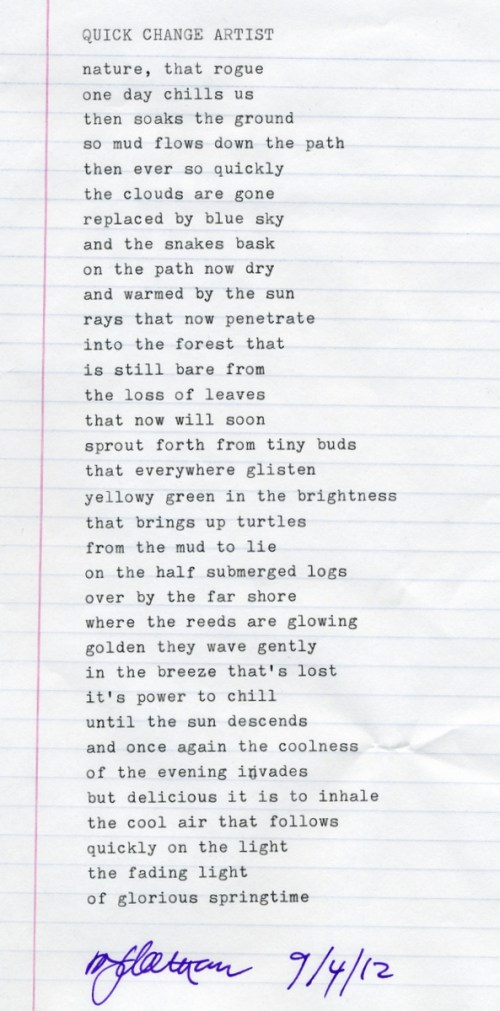 QUICK CHANGE ARTIST
nature, that rogue
one day chills us
then soaks the ground
so mud flows down the path
then ever so quickly
the clouds are gone
replaced by blue sky
and the snakes bask
on the path now dry
and warmed by the sun
rays that now penetrate
into the forest that
is still bare from
the loss of leaves
that now will soon
sprout forth from tiny buds
that everywhere glisten
yellowy green in the brightness
that brings up turtles
from the mud to lie
on the half submerged logs
over by the far shore
where the reeds are glowing
golden they wave gently
in the breeze that's lost
it's power to chill
until the sun descends
and once again the coolness
of the evening invades
but delicious it is to inhale
the cool air that follows
quickly on the light
the fading light
of glorious springtime
9/4/12